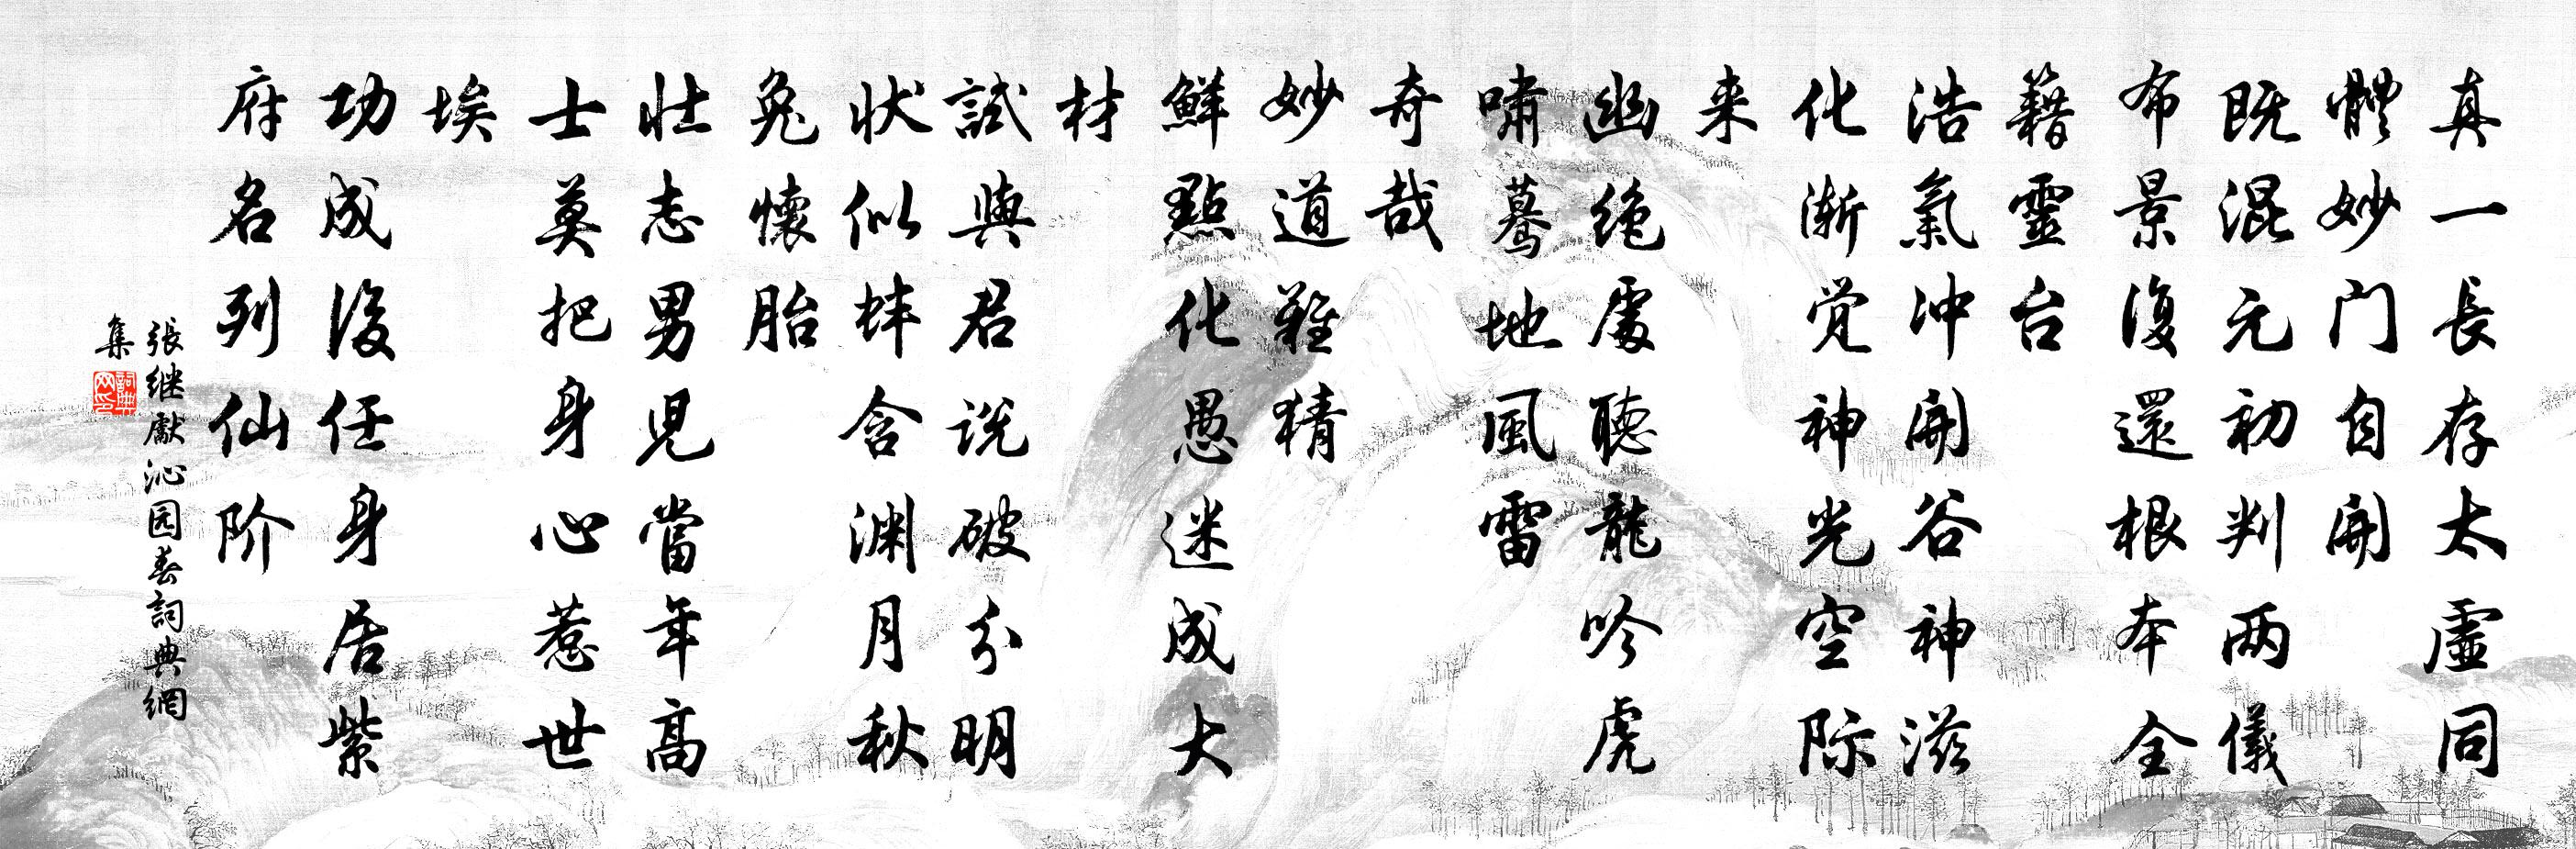 真一長存太虛同
體妙门自開
既混元初判两儀
布景復還根本全
籍靈台
浩氣冲開谷神滋
化漸觉神光空际
来
幽绝處聽龍吟虎
嘯蓦地風雷
奇哉
妙道難猜
鮮點化愚迷成大
材
試與君说破分明
状似蚌含渊月秋
兔懷胎
壮志男児當年高
士莫把身心惹世
埃
功成後任身居紫
府名列仙阶
張继獻沁园春詞典網
集
詞典网印